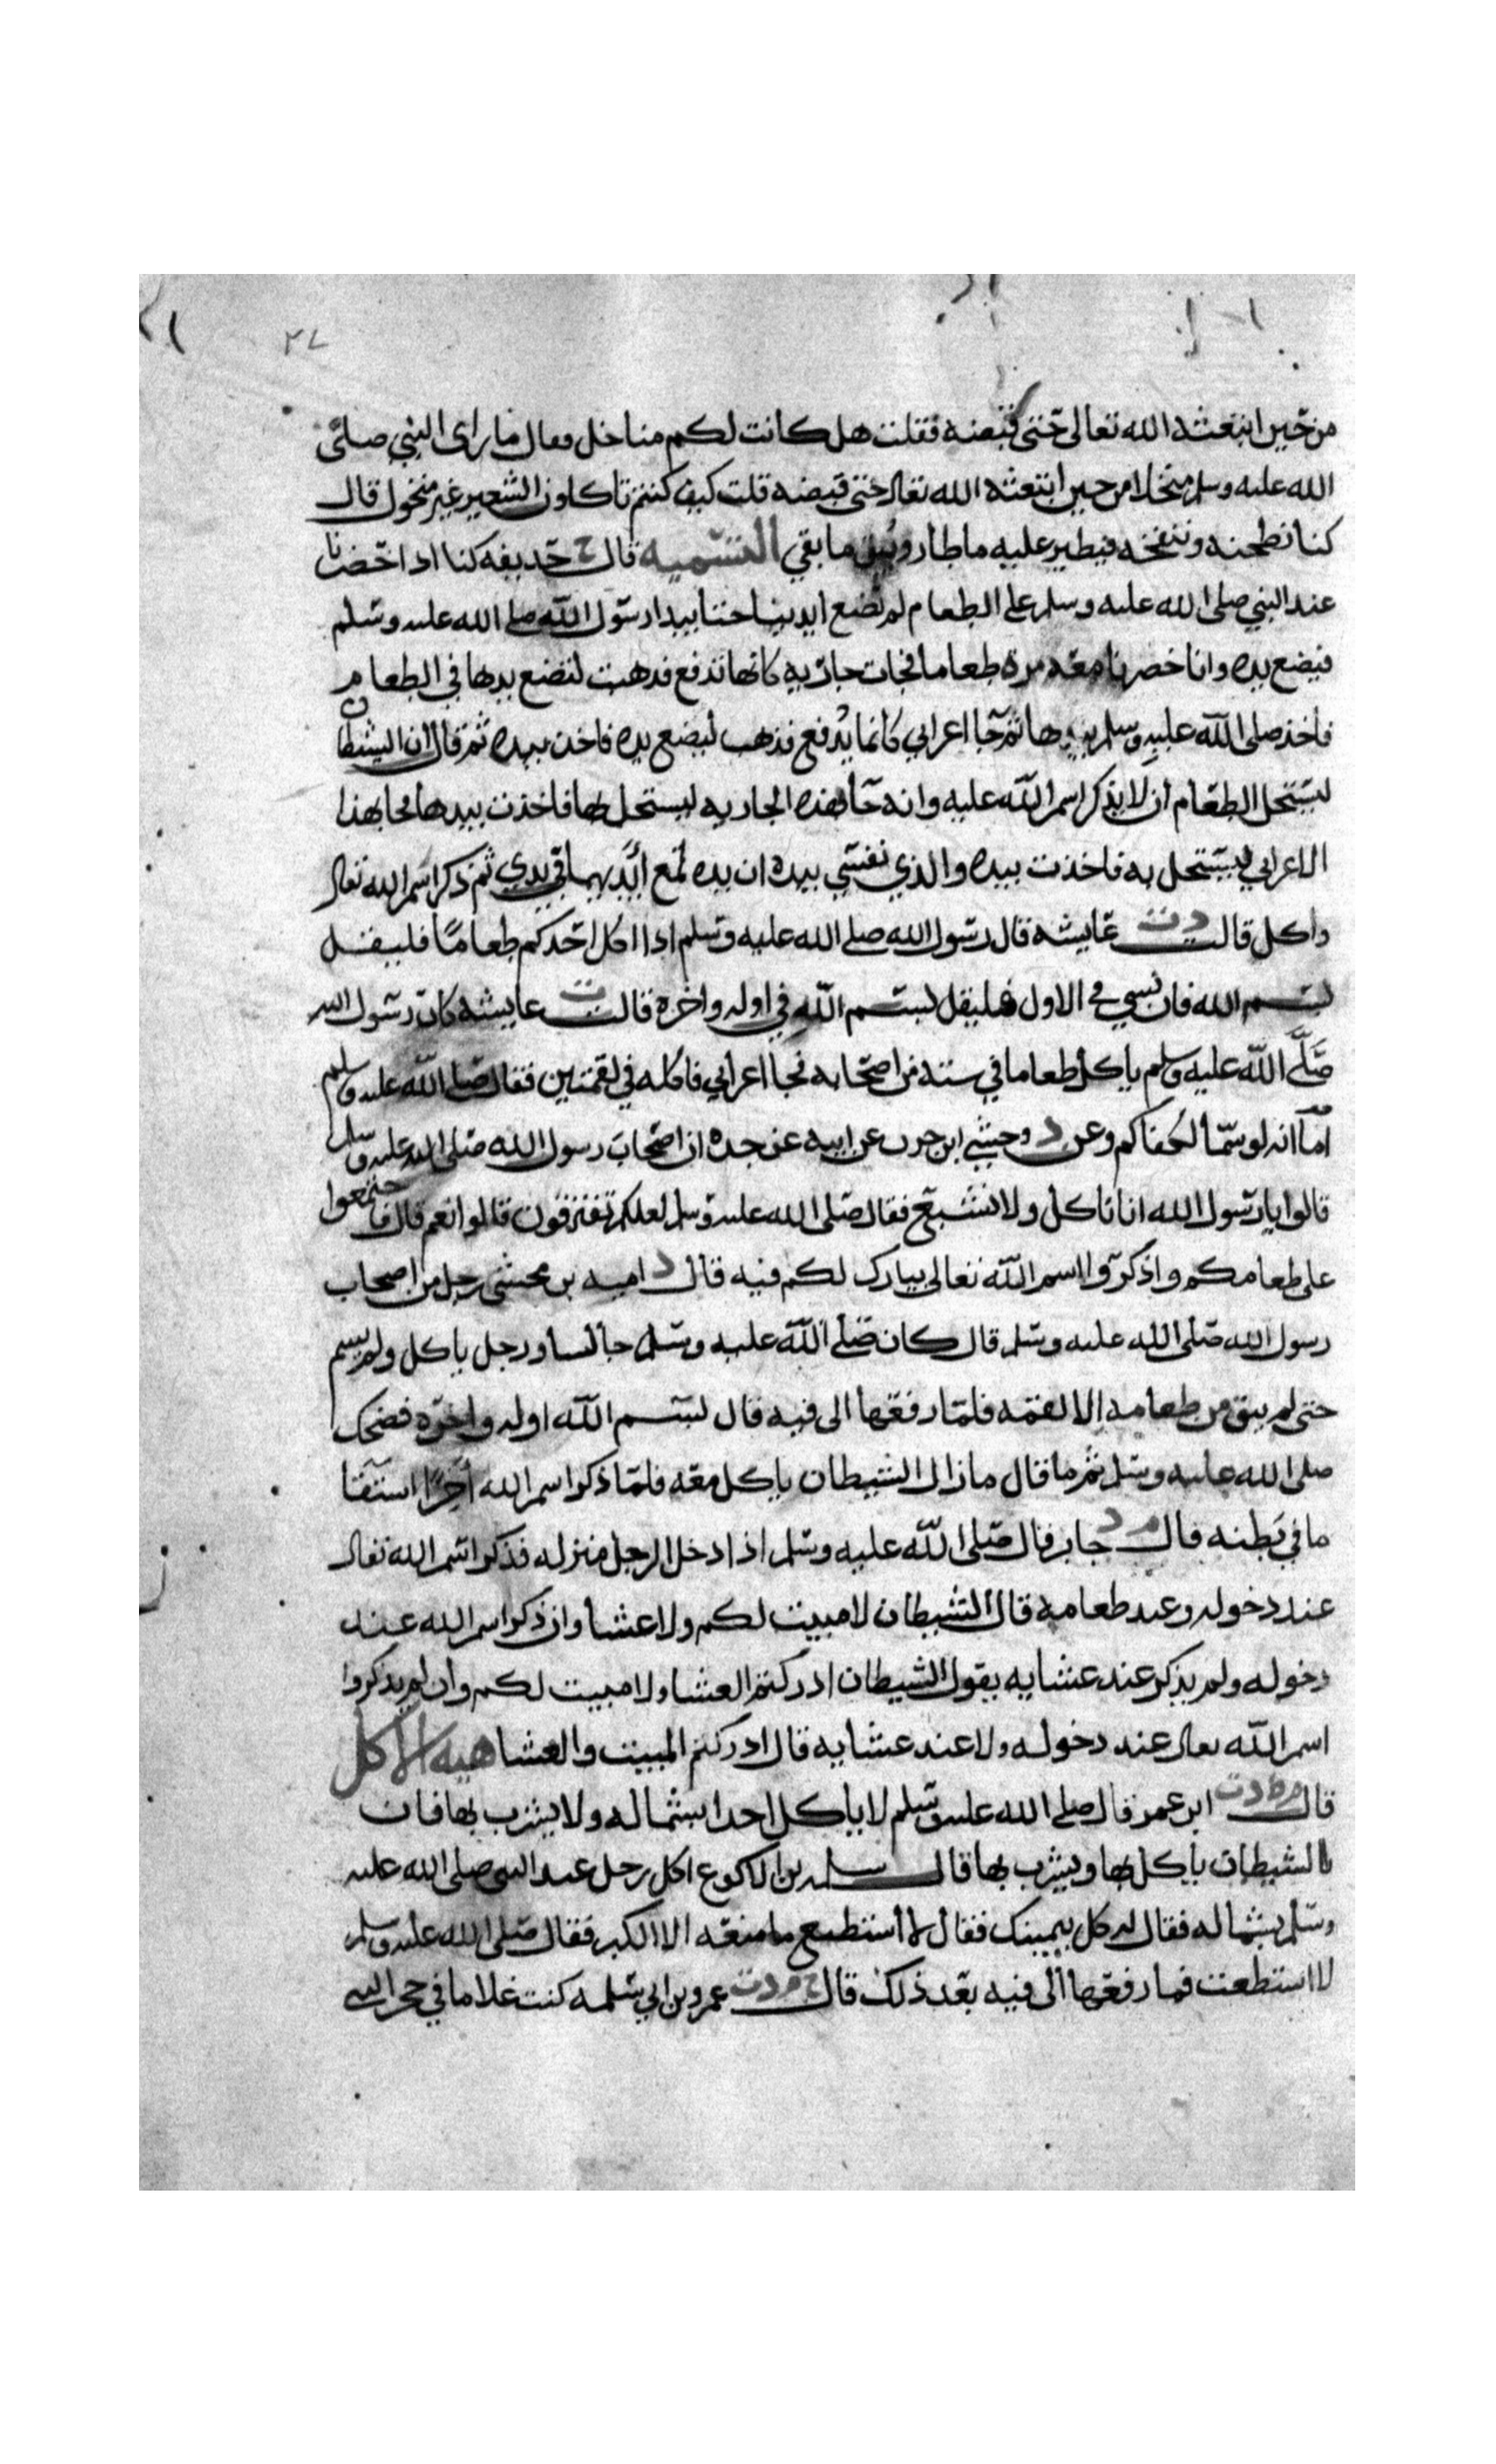 ٢٧
من حين ابتعثه الله تعالى حتى قبضه فقلت هل كانت لكم مناخل فقال ما راى النبي صلى
الله عليه وسلم منخلا من حين ابتعثه الله تعالى حتى قبضه قلت كيف كنتم تاكلون الشعير غير منخول قال
كنا نطحنه وننفخه فيطير عليه ما طار وثريق ما بقي التسميه قال ح حذيفه كنا اذا حضرنا
عند النبي صلى الله عليه وسلم على الطعام لم نضع ايدينا حتا يبدا رسول الله صلى الله عليه وسلم
فيضع يده وانا حضرنا معه مرة طعاما فجات جاريه كانها تدفع فذهبت لتضع يدها في الطعام
فاخذ صلى الله عليه وسلم بيدها ثم جا اعرابي كانما يدفع فذهب ليضع يده فاخذ بيده ثم قال ان الشيطان
ليستحل الطعام ان لا يذكر اسم الله عليه وانه جا بهذه الجاريه ليستحل بها فاخذت بيدها فجا بهذا
الاعرابي ليستحل به فاخذت بيده والذي نفسي بيده ان يده لمع ايديهما في يدي ثم ذكر اسم الله تعالى
واكل قالت د ت عايشه قال رسول الله صلى الله عليه وسلم اذا اكل احدكم طعاما فليقل
بسم الله فان نسي في الاول فليقل بسم الله في اوله واخره قالت ت عايشه كان رسول الله
صلى الله عليه وسلم ياكل طعاما في ستة من اصحابه فجا اعرابي فاكله في لقمتين فقال صلى الله عليه وسلم
اما انه لو سما لكفاكم وعن د وحشي ابن حرب عن ابيه عن جده ان اصحاب رسول الله صلى الله عليه وسلم
قالوا يا رسول الله انا ناكل ولا نشبع فقال صلى الله عليه وسلم لعلكم تفترقون قالوا نعم قال فاجتمعوا
على طعامكم واذكروا اسم الله تعالى يبارك لكم فيه قال د اميه بن مخشي رجل من اصحاب
رسول الله صلى الله عليه وسلم قال كان صلى الله عليه وسلم جالسا ورجل ياكل ولم يسم
حتى لم يبق من طعامه الا لقمه فلما رفعها الى فيه قال بسم الله اوله واخره فضحك
صلى الله عليه وسلم ثم ما قال مازال الشيطان ياكل معه فلما ذكر اسم الله اخرا استقا
ما في بطنه قال م د جابر قال صلى الله عليه وسلم اذا دخل الرجل منزله فذكر اسم الله تعالى
عند دخوله وعند طعامه قال الشيطان لا مبيت لكم ولا عشا وان ذكر اسم الله عند
دخوله ولم يذكر عند عشايه يقول الشيطان ادركتم العشا ولا مبيت لكم وان لم يذكروا
اسم الله تعالى عند دخوله ولا عند عشايه قال ادركتم المبيت والعشا هيه الاكل
قال م ط د ت ابن عمر قال صلى الله عليه وسلم لا ياكل احدا بشماله ولا يشرب بها فان
الشيطان ياكل بها ويشرب بها قال سلمه بن الاكوع اكل رجل عند النبي صلى الله عليه
وسلم بشماله فقال له كل بيمينك فقال لا استطيع ما منعه الا الكبر فقال صلى الله عليه وسلم
لا استطعت فما رفعها الى فيه بعد ذلك قال خ م د ت عمرو بن ابي سلمه كنت غلاما في حجر النبي